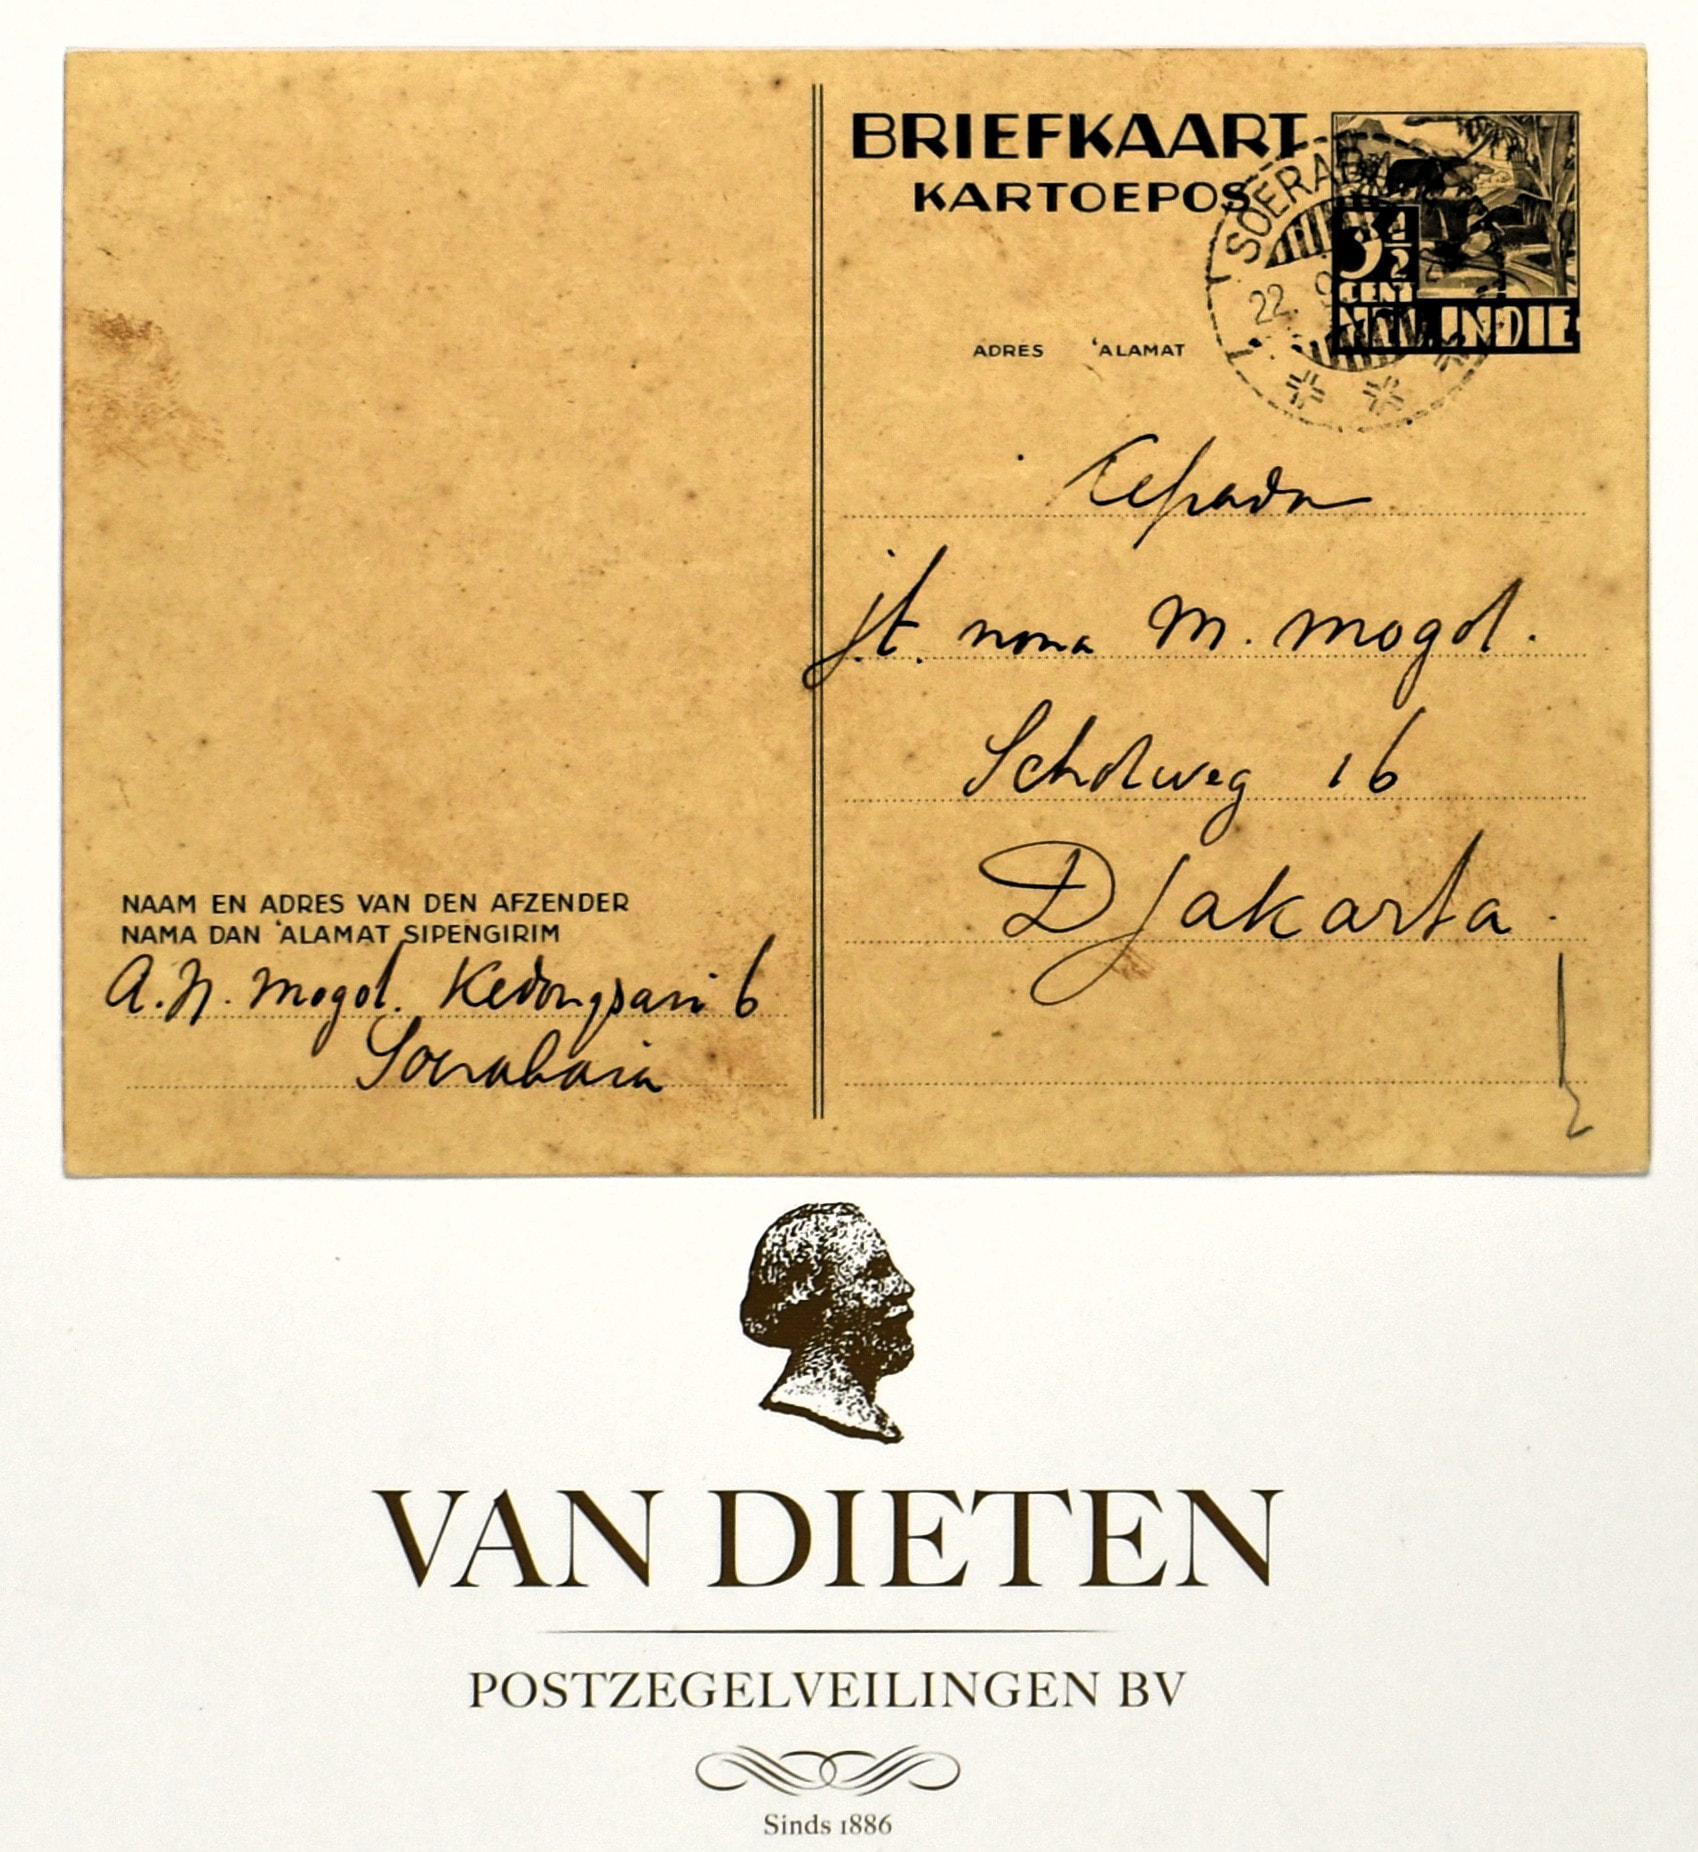 BRIEFKAART
KARTOEPOS
SOERABA
22. 9
3½
CENT
NED. INDIE
ADRES 'ALAMAT
Kepada
jt. nona M. Mogot.
Scholweg 16
Djakarta.
NAAM EN ADRES VAN DEN AFZENDER
NAMA DAN 'ALAMAT SIPENGIRIM
A.N. Mogot. Kedongsari 6
Soerabaia
VAN DIETEN
POSTZEGELVEILINGEN BV
Sinds 1886